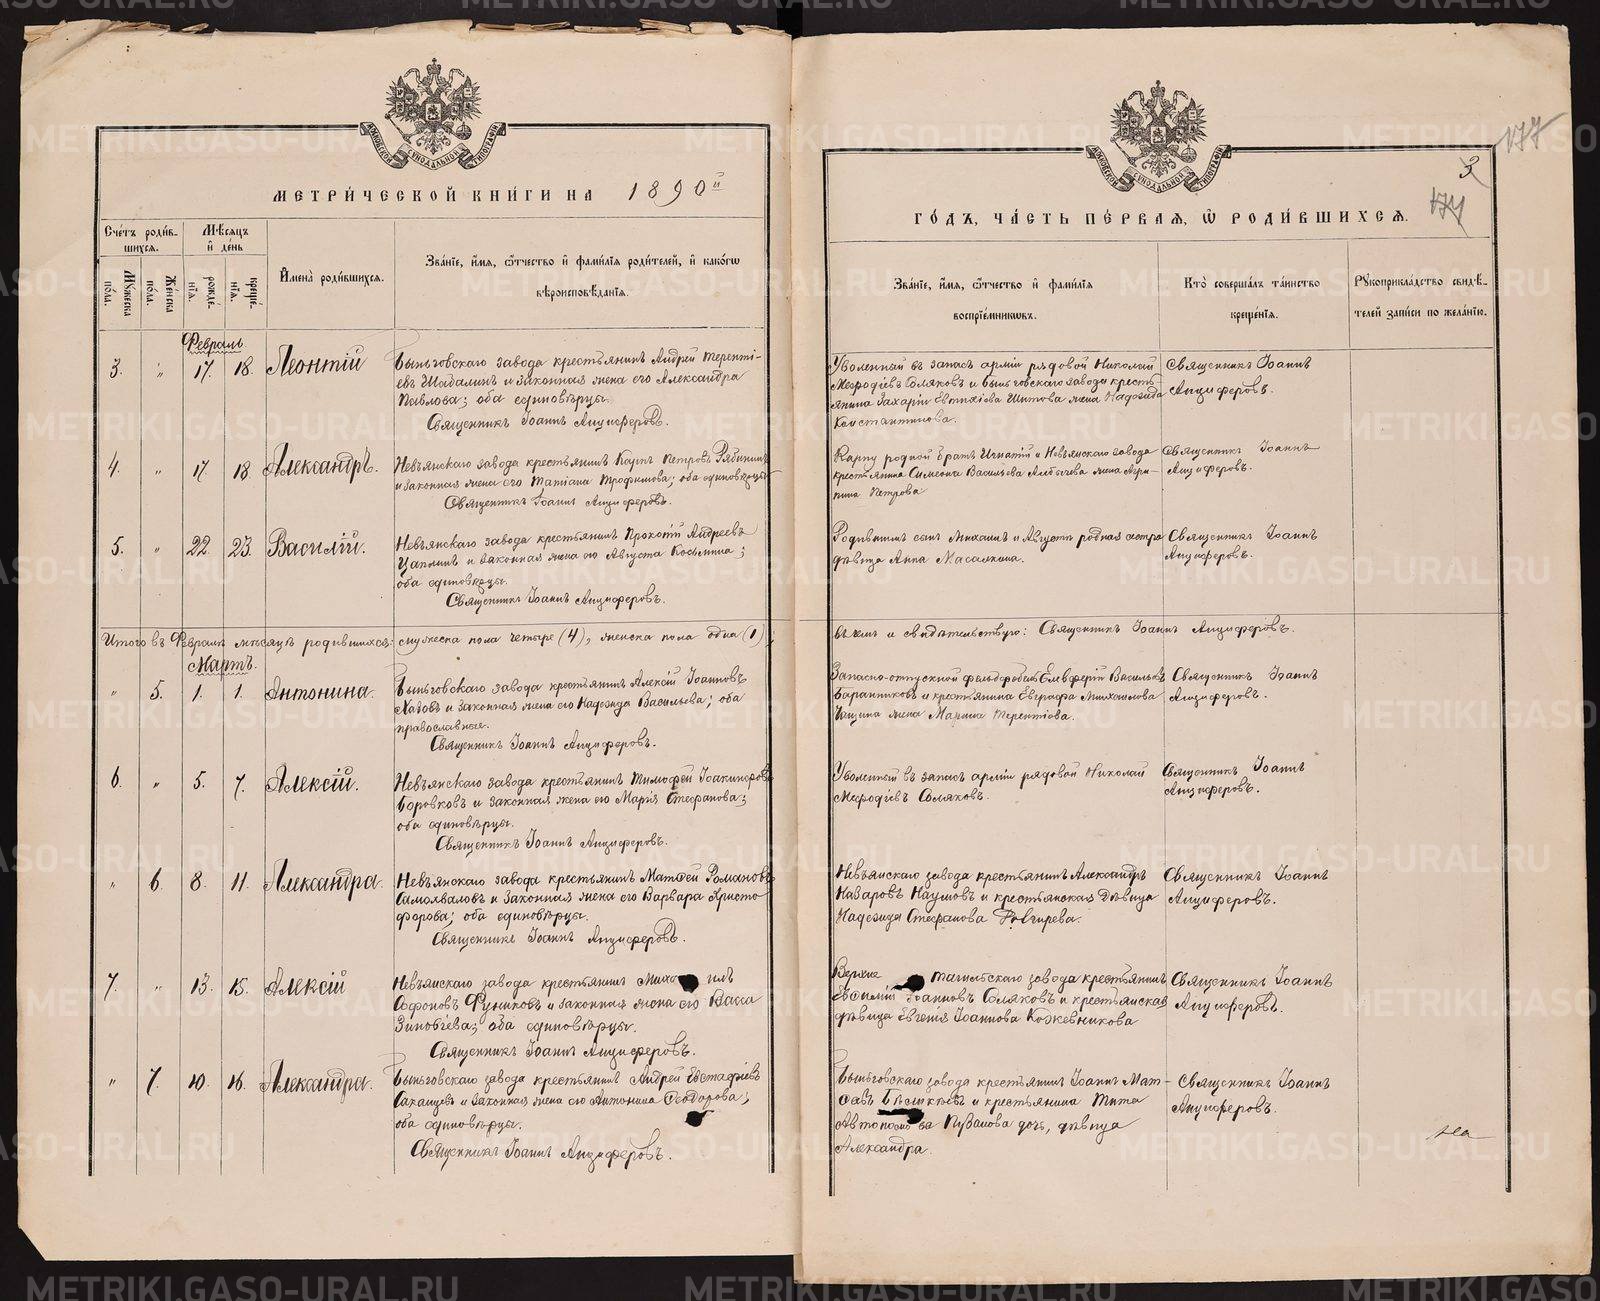 МЕТРИ́ЧЕСКОЙ КНИ́ГИ НА 1890й
Сче́тъ роди́в-
шихся.
Мѣ́сяцъ
и̂ де́нь
Му́жеска
по́ла.
Же́нска
по́ла.
рожде́-
нїя.
креще́-
нїя.
И̂мена̀ роди́вшихся.
Зва́нїе, и̂́мя, ѻ̂́тчество и̂ фами́лїя роди́телей, и̂ како́гѡ
вѣроисповѣ́данїя.
Февраль
3. " 17. 18. Леонтій
Быньговскаго завода крестьянинъ Андрей Теренті-
евъ Шадалинъ и законная жена его Александра
Павлова; оба единовѣрцы.
Священникъ Іоаннъ Анциферовъ.
4. " 17. 18. Александръ.
Невьянскаго завода крестьянинъ Карпъ Петровъ Рябининъ
и законная жена его Татіана Трофимова; оба единовѣрцы
Священникъ Іоаннъ Анциферовъ.
5. " 22. 23. Василій.
Невьянскаго завода крестьянинъ Прокопій Андреевъ
Цаплинъ и законная жена его Августа Косьмина;
оба единовѣрцы.
Священникъ Іоаннъ Анциферовъ.
Итого въ Февралѣ мѣсяцѣ родившихся: мужеска пола четыре (4), женска пола одна (1)
Мартъ.
" 5. 1. 1. Антонина.
Быньговскаго завода крестьянинъ Алексій Іоанновъ
и законная жена его Надежда Васильева; оба
православные.
Священникъ Іоаннъ Анциферовъ.
6. " 5. 7. Алексій.
Невьянскаго завода крестьянинъ Тимофей Іоакимовъ
Боровковъ и законная жена его Марія Стефанова;
оба единовѣрцы.
Священникъ Іоаннъ Анциферовъ.
" 6. 8. 11. Александра.
Невьянскаго завода крестьянинъ Матфей Романовъ
Самохваловъ и законная жена его Варвара Христо
форова; оба единовѣрцы.
Священникъ Іоаннъ Анциферовъ.
7. " 13. 15. Алексій
Невьянскаго завода крестьянинъ Миха илъ
Софоновъ Фуниковъ и законная жена его Васса
Зиновіева; оба единовѣрцы.
Священникъ Іоаннъ Анциферовъ.
" 7. 10. 16. Александра.
Быньговскаго завода крестьянинъ Андрей Евстафіевъ
и законная жена его Антонина Ѳеодорова;
оба единовѣрцы.
Священникъ Іоаннъ Анциферовъ.
177
3
174
ГО́ДЪ, ЧА́СТЬ ПЕ́РВАЯ, Ѽ РОДИ́ВШИХСЯ.
Зва́нїе, и̂́мя, ѻ̂́тчество и̂ фами́лїя
воспрїе́мникѡвъ.
Кто̀ соверша́лъ та́инство
креще́нїя.
Рукоприкла́дство свидѣ́-
телей за́писи по жела́нїю.
Уволенный въ запасъ арміи рядовой Николай
Меѳодіевъ Соляковъ и Быньговскаго завода кресть-
янина Захаріи Евтихіева Шитова жена Надежда
Константинова.
Священникъ Іоаннъ
Анциферовъ.
Карпу родной братъ Игнатій и Невьянскаго завода
крестьянина Симеона Васильева жена Агрип-
пина Петрова
Священникъ Іоаннъ
Анциферовъ.
сынъ Михаилъ и Августы родная сестра
дѣвица Анна
Священникъ Іоаннъ
Анциферовъ.
въ чемъ и свидѣтельствую: Священникъ Іоаннъ Анциферовъ.
Запасно-отпускной Елевферій Васильевъ
Баранниковъ и крестьянина Евграфа Михаилова
жена Марина Терентіева.
Священникъ Іоаннъ
Анциферовъ.
Уволенный въ запасъ арміи рядовой Николай
Меѳодіевъ Соляковъ.
Священникъ Іоаннъ
Анциферовъ.
Невьянскаго завода крестьянинъ Александръ
Назаровъ Наумовъ и крестьянская дѣвица
Надежда Стефанова
Священникъ Іоаннъ
Анциферовъ.
Верхне Тагильскаго завода крестьянинъ
Іоанновъ Соляковъ и крестьянская
дѣвица Евгенія Іоаннова Кожевникова
Священникъ Іоаннъ
Анциферовъ.
Быньговскаго завода крестьянинъ Іоаннъ Мат-
ѳеевъ и крестьянина Тита
дочь, дѣвица
Александра.
Священникъ Іоаннъ
Анциферовъ.